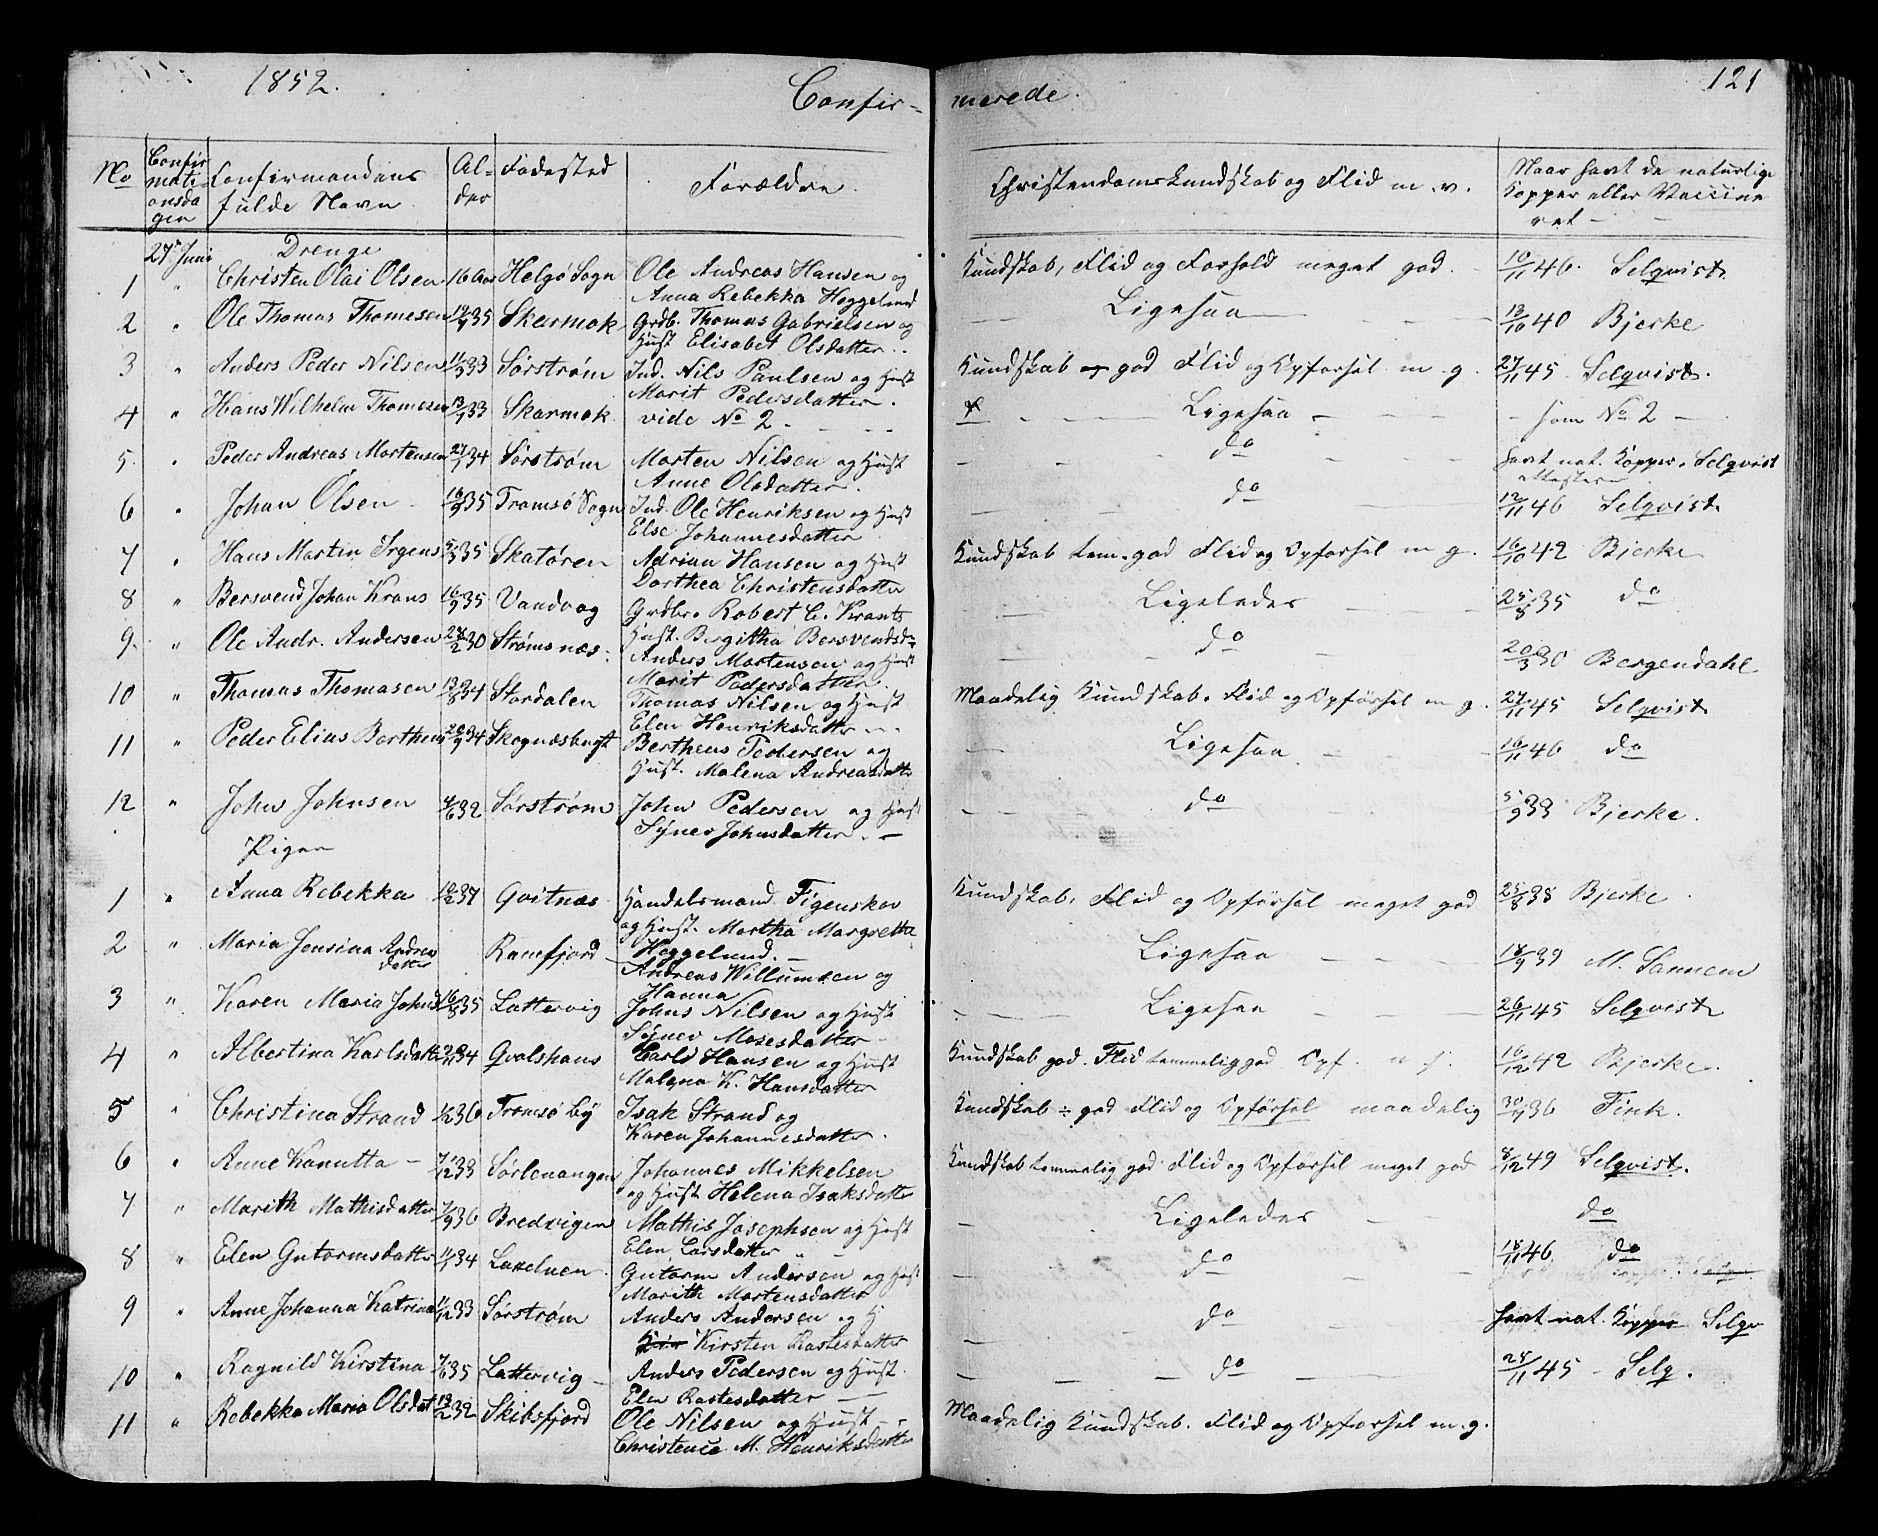 1852. Confir- merede. 121
No Confir mati- onsda gen Confirmandens fulde Navn Al- der Fødested Forældre. Christendomskundskab og Flid m. v. Naar havt de naturlige Kopper eller Vaccine ret
27de Juni Drenge
1 " Christen Olai Olsen 16 Aar Helgø Sogn Ole Andreas Hansen og Kundskab, Flid og Forhold meget god. 10/11 46. Selqvist
Anna Rebekka Heggelund
2 " Ole Thomas Thomesen 35 Skarmok Grdb. Thomas Gabrielsen og Ligesaa 13/10 40 Bjerke
Hust Elisabet Olsdatter
3 " Anders Peder Nilsen 33 Sørstrøm Ind. Nils Paulsen og Hust Kundskab god Flid og Opførsel m. g. 27/11 45 Selqvist.
Marit Pedersdatter.
4 " Hans Wilhelm Thomesen 33 Skarmok vide No 2. Ligesaa - som No 2 -
5. " Peder Andreas Mortensen 27/1 34 Sørstrøm Morten Nilsen og Hust do havt nat. Kopper. Selqvist
Anne Olsdatter. attesterer
6 " Johan Olsen 16/9 35 Tromsø Sogn Ind. Ole Henriksen og Hust do 12/11 46 Selqvist
Else Johannesdatter
7 " Hans Martin Irgens 5/3 35 Skatøren Adrian Hansen og Hust Kundskab tem. god Flid og Opførsel m g. 16/10 42 Bjerke
Dorthea Christensdatter
8 " Bersvend Johan Krans 16/9 35 Vandvog Grdbr. Robert C. Krantz Ligeledes 25/8 35 do
Hust. Birgitha Bersvendsd.
9. " Ole Andr. Andersen 28/2 30 Strømsnæs. Anders Mortensen og Hust do 20/3 30 Bergendahl
Marit Pedersdatter.
10 " Thomas Thomasen 13/8 34 Stordalen Thomas Nilsen og Hust Maadelig Kundskab. Flid og Opførsel m g. 27/11 45 Selqvist
Elen Henriksdatter
11 " Peder Elias Berthens 20/9 34 Skognæsbugt Bertheus Pedersen og Ligesaa 16/11 46 do
Hust. Malena Andreasdatter
12 " John Johnsen 32 Sørstrøm John Pedersen og Hust do 5/9 33 Bjerke.
Synev Johnsdatter.
Piger
1 " Anna Rebekka 10/2 37 Gvitnæs Handelsmand Figenskov Kundskab, Flid og Opførsel meget god 25/8 38 Bjerke
og Hust. Martha Margretha
Heggelund.
2 " Maria Jensina Andreas datter Ramfjord Andreas Willumsen og Ligesaa 18/9 39 M. Sannem
Hanna
3 " Karen Maria Johnsd 16/8 35 Lattervig Johns Nilsen og Hust Ligesaa 26/11 45 Selqvist
Synev Mosesdatter
4 " Albertina Karlsdatter 20/11 34 Gvalshaus Carld Hansen og Hust Kundskab god. Flid temmelig god Opf. 16/12 42 Bjerke.
Malena K. Hansdatter
5 " Christina Strand 36 Tromsø By Isak Strand og Kundskab ÷ god Flid og Opførsel maadelig 36 Fink.
Karen Johannesdatter.
6 " Anne Kanutta 33 Sørlenangen Johannes Mikkelsen Kundskab temmelig god Flid og Opførsel meget god 8/12 49 Selqvist.
og Hust Helena Isaksdatter
7 " Marith Mathisdatter 7/9 36 Bredvigen Mathis Josephsen og Hust Ligeledes do
Elen Larsdatter
8 " Elen Gutormsdatter 34 Laxelven Gutorm Andersen og Hust do 18/11 46 do
Marith Mortensdatter
9 " Anne Johanna Katrina 11/12 33 Sørstrøm Anders Andersen og H do havt nat. Kopper Selqv
Kirsten Rastesdatter
10 " Ragnild Kirstina 7/6 35 Lattervig Anders Pedersen og Hust. do 28/11 45 - Selq.
Elen Rastesdatter
11 " Rebekka Maria Olsdat 13/2 32 Skibsfjord Ole Nilsen og Hust Maadelig Kundskab. Flid og Opførsel m. g.
Christence M. Henriksdatter